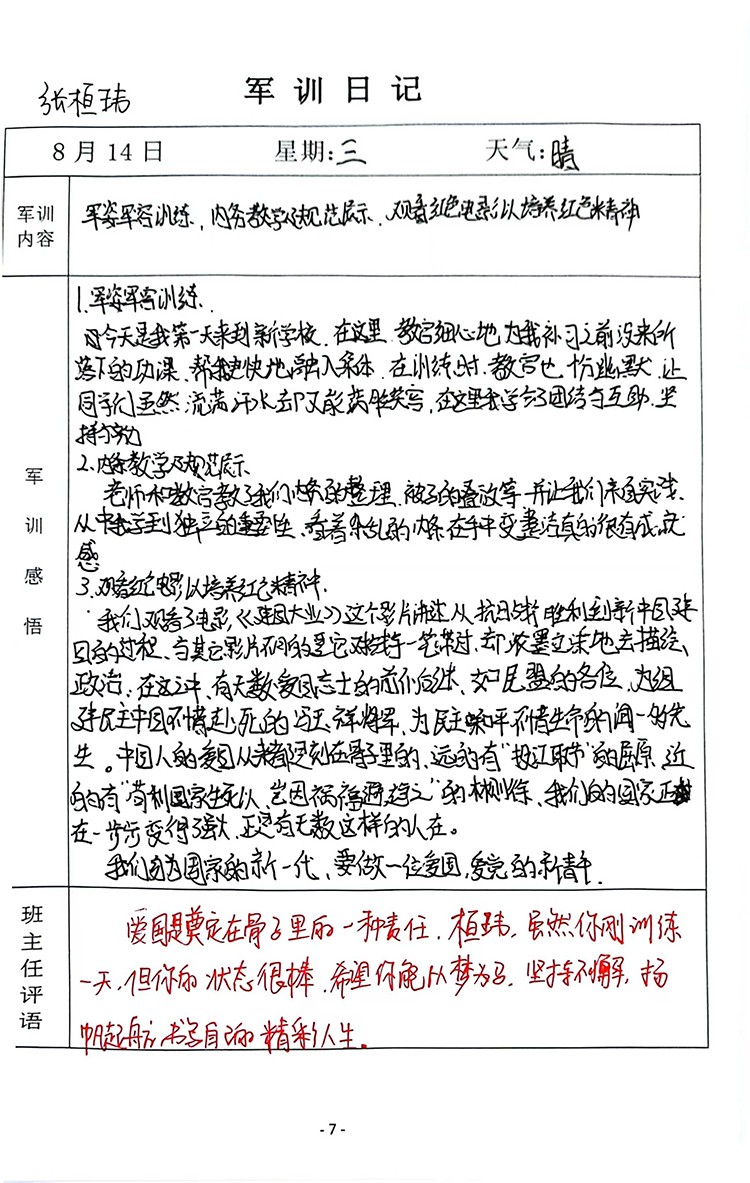 军训日记
张桓玮
8月14日 星期:三 天气:晴
军训
内容
军姿军容训练，内务教学及规范展示、观看红色电影以培养红色精神
军
训
感
悟
1.军姿军容训练.
今天是我第一天来到新学校、在这里、教官细心地为我补习之前没来所
落下的功课、帮我更快地融入集体、在训练时、教官也十分幽默、让
同学们虽然流满汗水却又能满脸笑容，在这里我学会了团结与互助、坚
持努力
2.内务教学及规范展示
老师和教官教了我们内务的整理、被子的叠放等并让我们亲自实践、
从中我学到独立的重要性、看着杂乱的内务在手中变整洁真的很有成就
感
3.观看红色电影以培养红色精神.
我们观看了电影《建国大业》这个影片讲述从抗日战争胜利到新中国建
国的过程、与其它影片不同的是它对战争一笔带过、却浓墨立染地去描绘、
政治、在这之中、有无数爱国志士的前仆后继、如民盟的各位、为组
建民主中国不惜赴死的冯玉祥将军、为民主和平不惜生命的闻一多先
生。中国人的爱国从来都是刻在骨子里的、远的有“投江取节”的屈原、近
的有“苟利国家生死以、岂因祸福避趋之”的林则徐、我们的国家正
在一步步变得强大、正是有无数这样的人在。
我们身为国家的新一代、要做一位爱国，爱党的新青年.
班
主
任
评
语
爱国是奠定在骨子里的一种责任，桓玮，虽然你刚训练
一天，但你的状态很棒，希望你能以梦为马，坚持不懈，扬
帆起航书写自己的精彩人生。
- 7 -